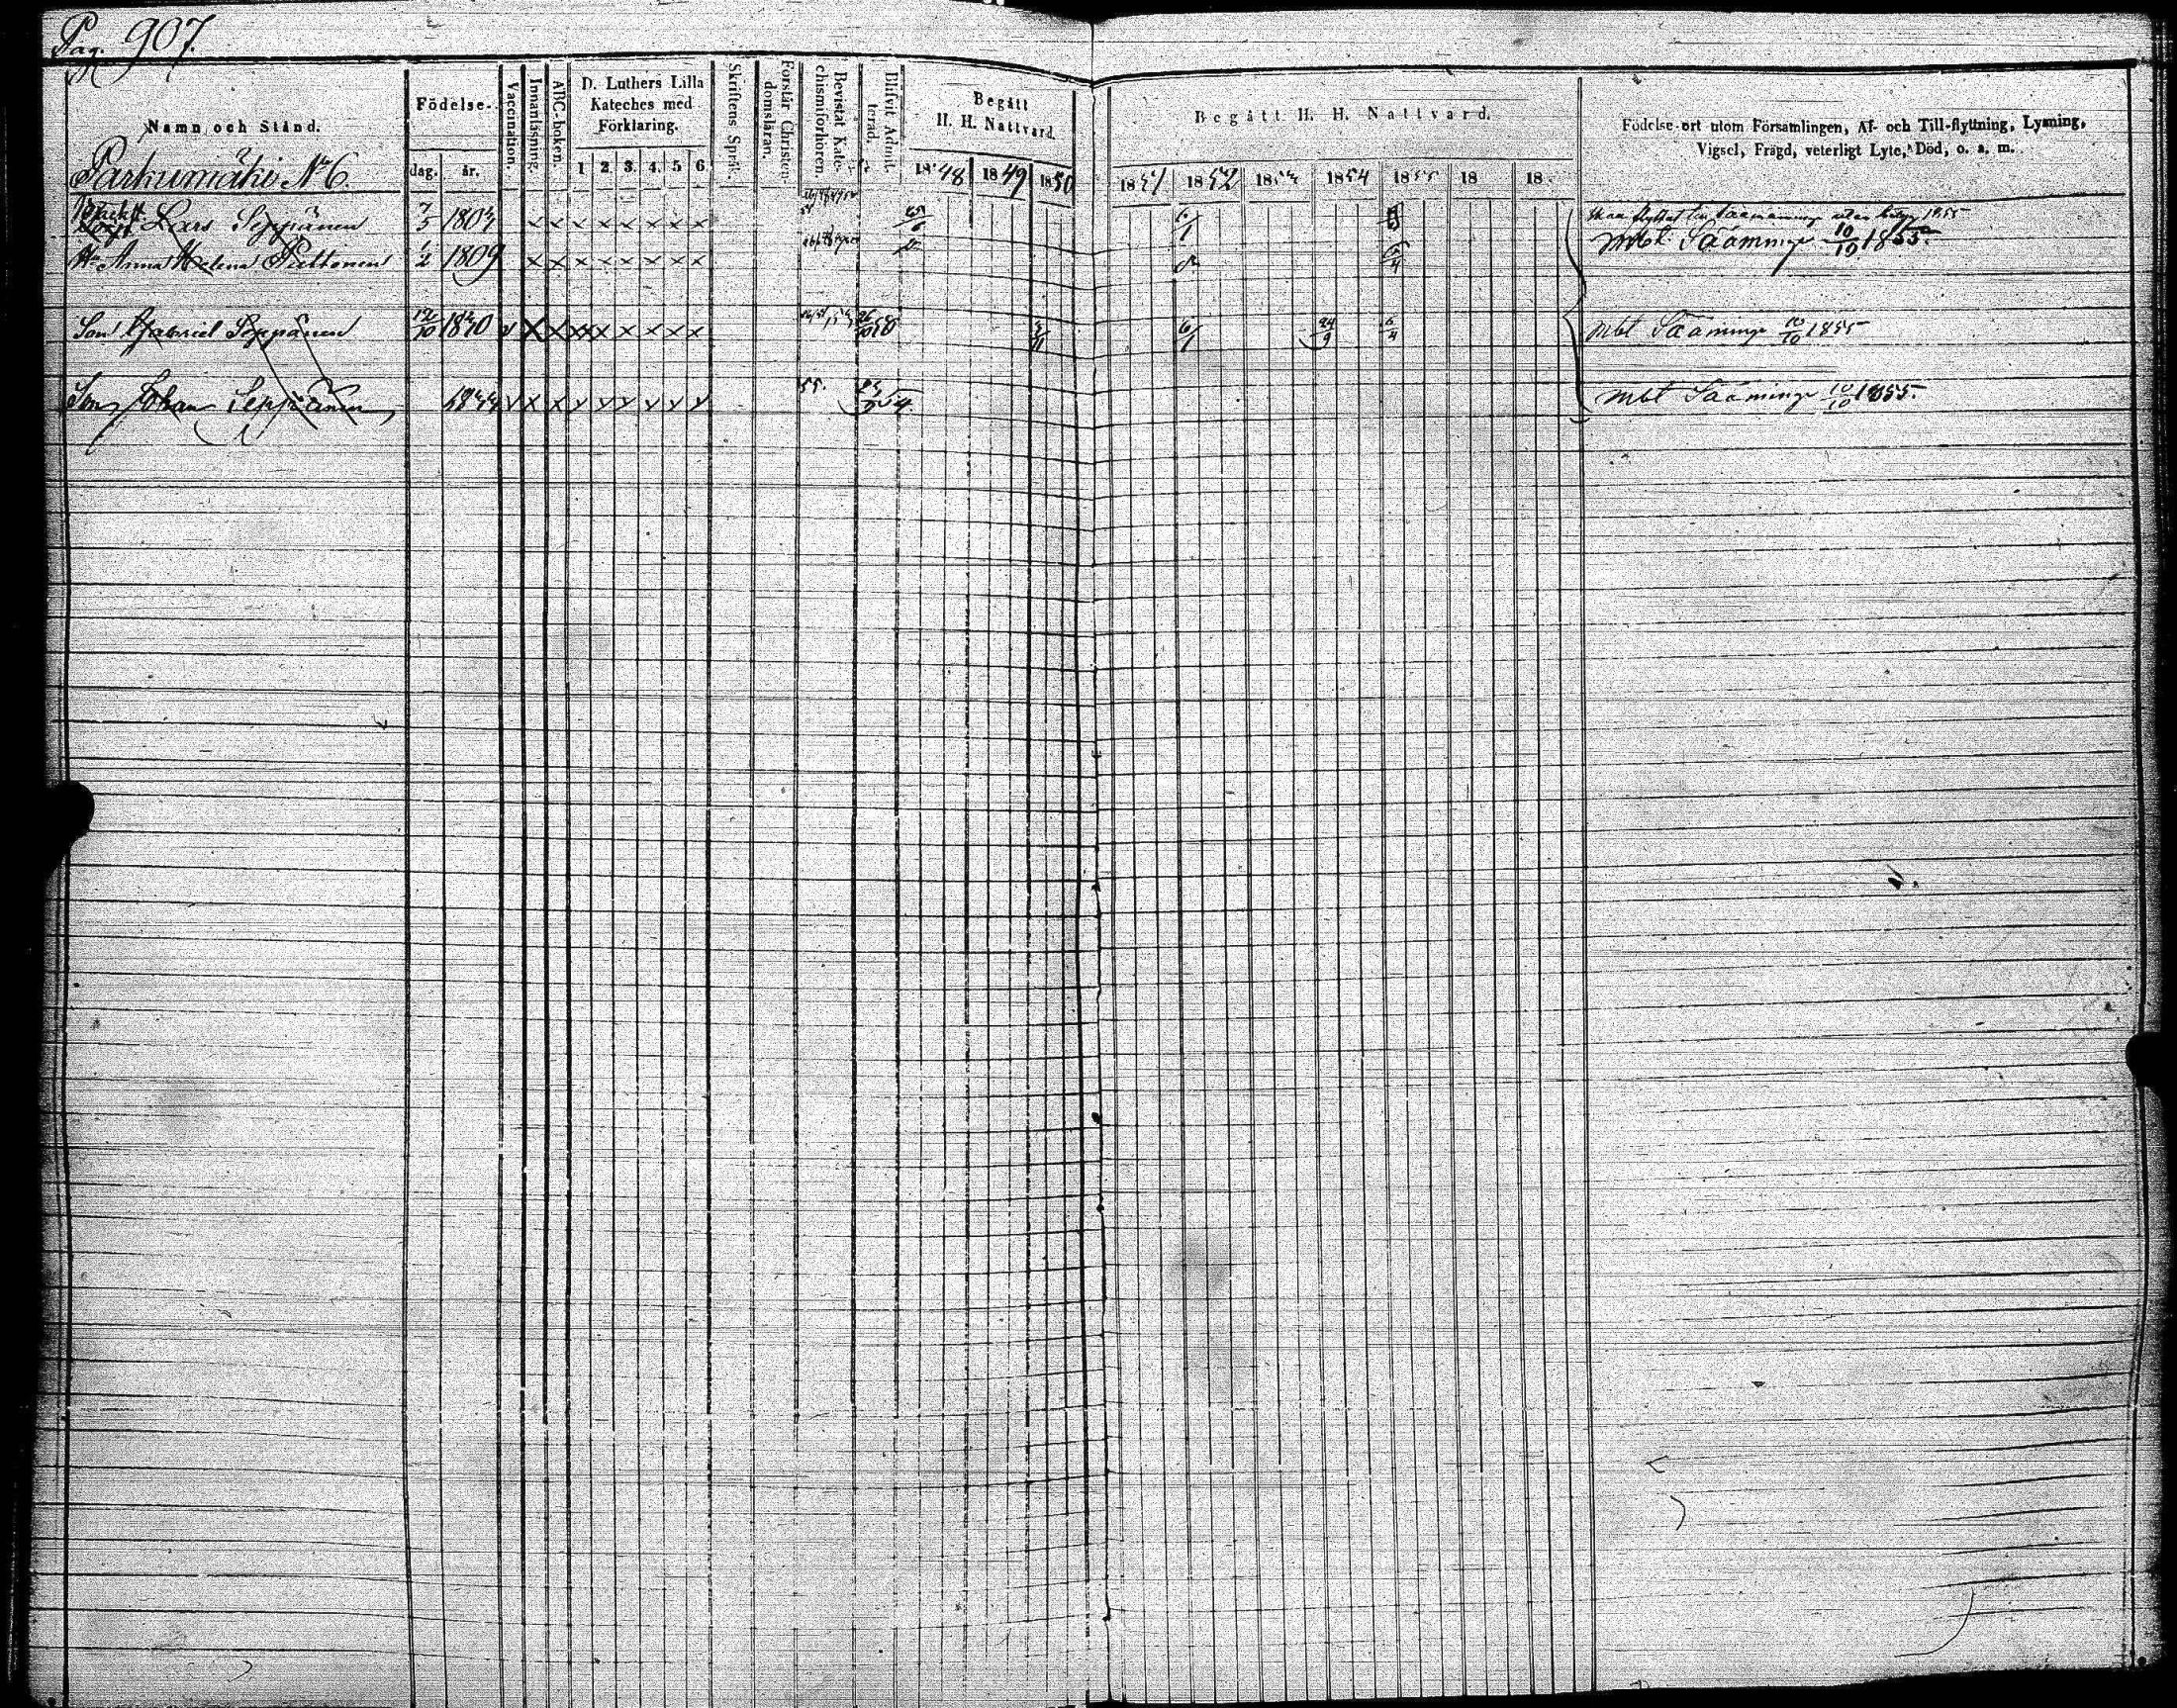 Pag. 907.
Namn och Stånd.
Födelse-
dag. år.
Vaccination.
Innanläsning.
ABC-boken.
D. Luthers Lilla
Kateches med
Förklaring.
1 2. 3. 4. 5 6
Skriftens Språk.
Förstår Christen-
domsläran.
Bevistat Kate-
chismiförhören.
Blifvit Admit-
terad.
Begått
H. H. Nattvard.
1848 1849 1850
Begått H. H. Nattvard.
1851 1852 1853 1854 1855 18 18
Födelse-ort utom Församlingen, Af- och Till-flyttning, Lysning,
Vigsel, Frägd, veterligt Lyte, Död, o. a. m.
Parkumäki No 6.
Lars Seppänen 7/5 1803 x x x x x x x x 6/1
mbt. Sääminge 10/10 1855.
H. Anna Helena 1/2 1809 x x x x x x x x
Son Gabriel Seppänen 1830 x x x x x x x 6/1 24/9 mbt Sääminge 10/10 1855
Son Johan Seppänen 55. mbt Sääminge 10/10 1855.